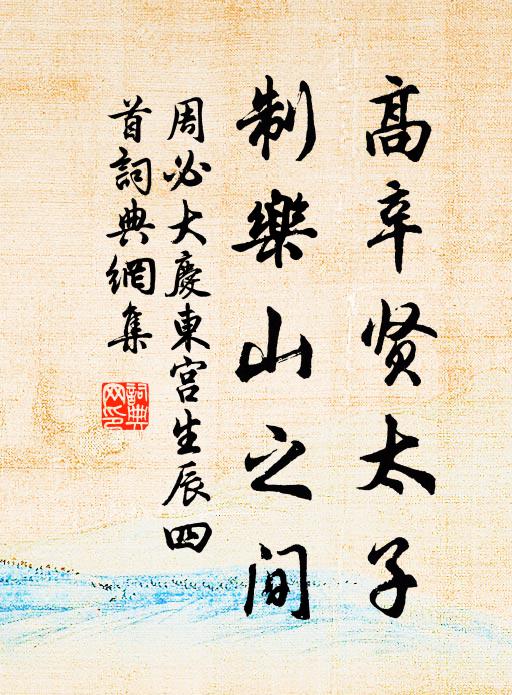 高辛贤太子
制樂山之间
周必大慶東宫生辰四
首詞典網集
詞典
网印